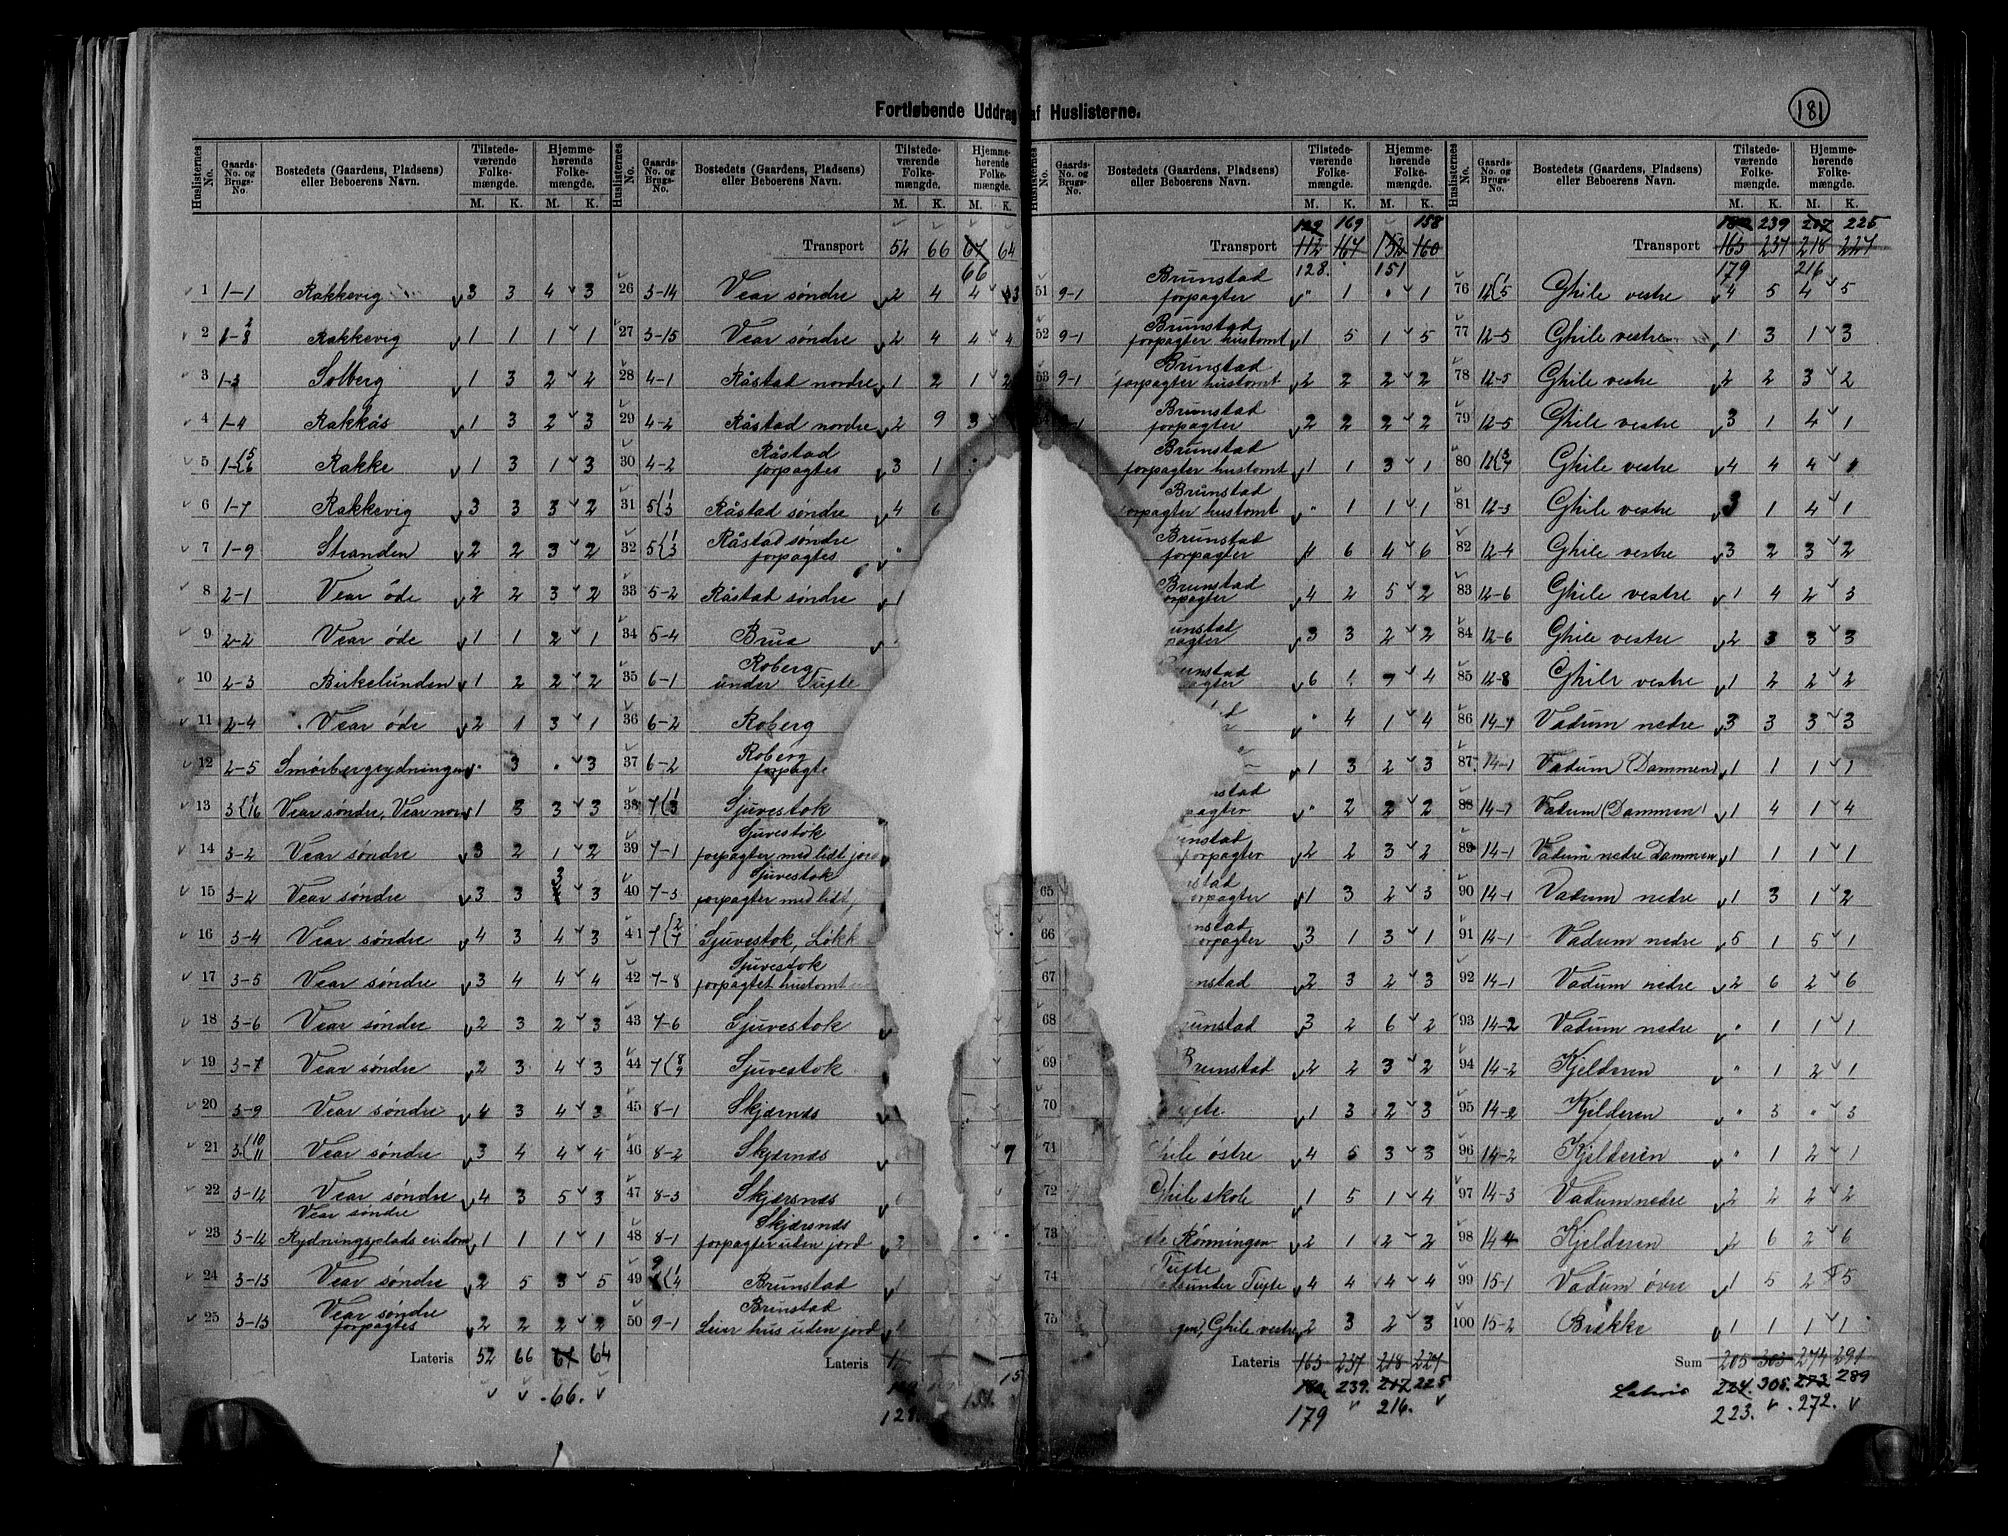 181
Fortløbende Uddrag af Huslisterne.
Huslisternes No. Gaards-No. og Brugs-No. Bostedets (Gaardens, Pladsens) eller Beboerens Navn. Tilstedeværende Folkemængde. M. K. Hjemmehørende Folkemængde. M. K.
1 1-1 Rakkevig 3 3 4 3
2 Rakkevig 1 1 1 1
3 1-3 Solberg 1 3 2 4
4 1-4 Rakkås 1 3 2 3
5 1-{5 6 Rakke 1 3 1 3
6 1-7 Rakkevig 3 3 3 2
7 1-9 Stranden 2 2 3 2
8 2-1 Vear öde 2 2 3 2
9 2-2 Vear øde 1 1 2 1
10 2-3 Birkelunden 1 2 2 2
11 2-4 Vear øde 2 1 3 1
12 2-5 Smörbergrydningen " 3 " 3
13 3{1 16 Vear søndre, Vear nor 1 3 3 3
14 3-2 Vear søndre 3 2 1 2
15 3-2 Vear søndre 3 3 3
16 3-4 Vear søndre 4 3 4 3
17 3-5 Vear søndre 3 4 4 4
18 3-6 Vear søndre 2 3 2 3
19 3-7 Vear søndre 2 3 4 3
20 3-9 Vear søndre 4 3 4 3
21 3{10 11 Vear søndre 3 4 4 4
22 3-12 Vear søndre 4 3 5 3
23 3-12 Vear søndre Rydningsplads eiendom 1 1 1 1
24 3-13 Vear søndre 2 5 3 5
25 3-13 Vear søndre forpagtes 2 2 2 2
Lateris 52 66 67 64
66.
Huslisternes No. Gaards-No. og Brugs-No. Bostedets (Gaardens, Pladsens) eller Beboerens Navn. Tilstedeværende Folkemængde. M. K. Hjemmehørende Folkemængde. M. K.
Transport 52 66 67 64
66
26 3-14 Vear søndre 2 4 4 3
27 3-15 Vear søndre 2 4 4 4
28 4-1 Råstad nordre 1 2 1 2
29 4-2 Råstad nordre 2 9 3
30 4-2 Råstad forpagtes 3 1
31 5{1 3 Råstad søndre 4 6
32 5{1 3 Råstad søndre forpagtes "
33 5-2 Råstad søndre 1
34 5-4 Brua
35 6-1 Roberg under Tufte
36 6-2 Roberg
37 6-2 Roberg forpagte
38 7{1 3 Sjuvestok
39 7-1 Sjuvestok forpagter med lidt jord
40 7-3 Sjuvestok forpagter med lidt
41 7{2 7 Sjuvestok, Løkk
42 7-8 Sjuvestok forpagtet hustomt
43 7-6 Sjuvestok
44 7{8 9 Sjuvestok
45 8-1 Skjærnæs
46 8-2 Skjærnæs 7
47 8-3 Skjærsnæs
48 8-1 Skjærsnæs forpagter uden jord 2
49 9{1 4 Brunstad
50 9-1 Brunstad Leier hus uden jord
Lateris
128 151.
Huslisternes No. Gaards-No. og Brugs-No. Bostedets (Gaardens, Pladsens) eller Beboerens Navn. Tilstedeværende Folkemængde. M. K. Hjemmehørende Folkemængde. M. K.
129 169 158
Transport 112 167 152 160
128. 151
51 9-1 Brunstad forpagter " 1 " 1
52 9-1 Brunstad forpagter hustomt 1 5 1 5
53 9-1 Brunstad forpagter hustomt 2 2 2 2
Brunstad forpagter 2 2 2 2
Brunstad forpagter hustomt 1 1 3 1
Brunstad forpagter hustomt " 1 1 1
Brunstad forpagter 4 6 4 6
Brunstad 4 2 5 2
3 3 2 2
6 1 7 4
" 4 1 4
1 3 2 3
" 2 2 2
2 2 3 2
65 1 3 2 3
66 3 1 3 1
67 2 3 2 3
68 3 2 6 2
69 Brunstad 2 2 3 2
70 1 3 2 3
71 Ghile östre 4 5 3 3
72 Ghile skole 1 5 1 4
73 Rønningen 2 1 2 2
74 Tufte under Tufte 4 4 4 4
75 Ghile vestre 2 3 2 3
Lateris 163 237 218 227
182 239. 217 225
179 216.
Huslisternes No. Gaards-No. og Brugs-No. Bostedets (Gaardens, Pladsens) eller Beboerens Navn. Tilstedeværende Folkemængde. M. K. Hjemmehørende Folkemængde. M. K.
182 239 217 225
Transport 163 237 218 227
179 216
76 12{1 5 Ghile vestre 4 5 4 5
77 12-5 Ghile vestre 1 3 1 3
78 12-5 Ghile vestre 2 2 3 2
79 12-5 Ghile vestre 3 1 4 1
80 12{3 7 Ghile vestre 4 4 4
81 12-3 Ghile vestre 3 1 4 1
82 12-4 Ghile vestre 3 2 3 2
83 12-6 Ghile vestre 1 4 2 3
84 12-6 Ghile vestre 2 3 3 3
85 12-8 Ghile vestre 1 2 2 2
86 14-1 Vadum nedre 3 3 3 3
87 14-1 Vadum (Dammen) 1 1 1 1
88 14-1 Vadum (Dammen) 1 4 1 4
89 14-1 Vadum nedre Dammen 1 1 1 1
90 14-1 Vadum nedre 1 3 1 2
91 14-1 Vadum nedre 5 1 5 1
92 14-1 Vadum nedre 2 6 2 6
93 14-2 Vadum nedre " 1 1 1
94 14-2 Kjelderen " 1 2 1
95 14-2 Kjelderen " 3 " 3
96 14-2 Kjelderen " 1 2 1
97 14-3 Vadum nedre 2 2 2 2
98 14-4 Kjelderen 2 6 2 6
99 15-1 Vadum øvre 1 5 2 5
100 15-2 Brekke 1 1 1 1
Sum 205 303 274 291
Lateris 224. 308. 273 289
223. 272.